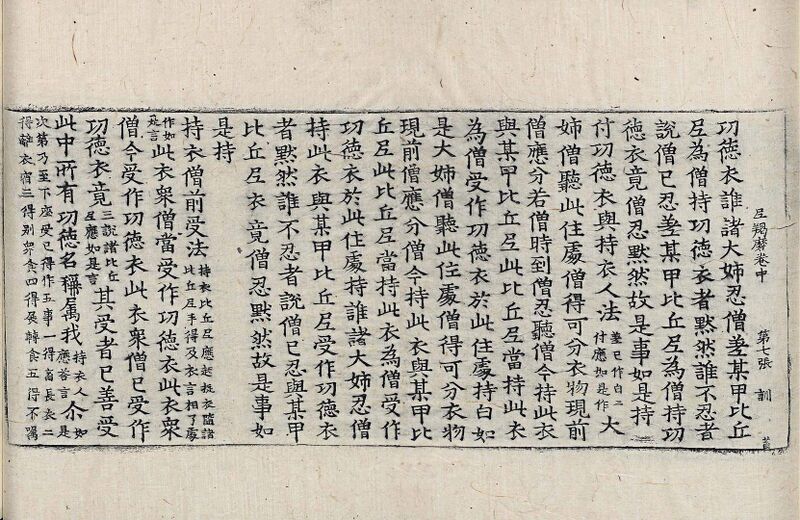 尼羯磨卷中　第七張　訓
功德衣誰諸大姉忍僧差某甲比丘
尼為僧持功德衣者默然誰不忍者
說僧已忍差某甲比丘尼為僧持功
德衣竟僧忍默然故是事如是持
付功德衣與持衣人法 差已作白二付應如是作 大
姉僧聽此住處僧得可分衣物現前
僧應分若僧時到僧忍聽僧今持此衣
與某甲比丘尼此比丘尼當持此衣
為僧受作功德衣於此住處持白如
是大姉僧聽此住處僧得可分衣物
現前僧應分僧今持此衣與某甲比
丘尼此比丘尼當持此衣為僧受作
功德衣於此住處持誰諸大姉忍僧
持此衣與某甲比丘尼受作功德衣
者默然誰不忍者說僧已忍與某甲
比丘尼衣竟僧忍默然故是事如
是持
持衣僧前受法 持衣比丘尼應起捉衣隨諸比丘尼手得及衣言相了處
作如是言 此衣衆僧當受作功德衣此衣衆
僧今受作功德衣此衣衆僧已受作
功德衣竟 三說諸比丘尼應如是言 其受者已善受
此中所有功德名稱属我 持衣人應答言 尒 如是
次第乃至下座受已得作五事一得畜長衣二
得離衣宿三得別衆食四得展轉食五得不囑